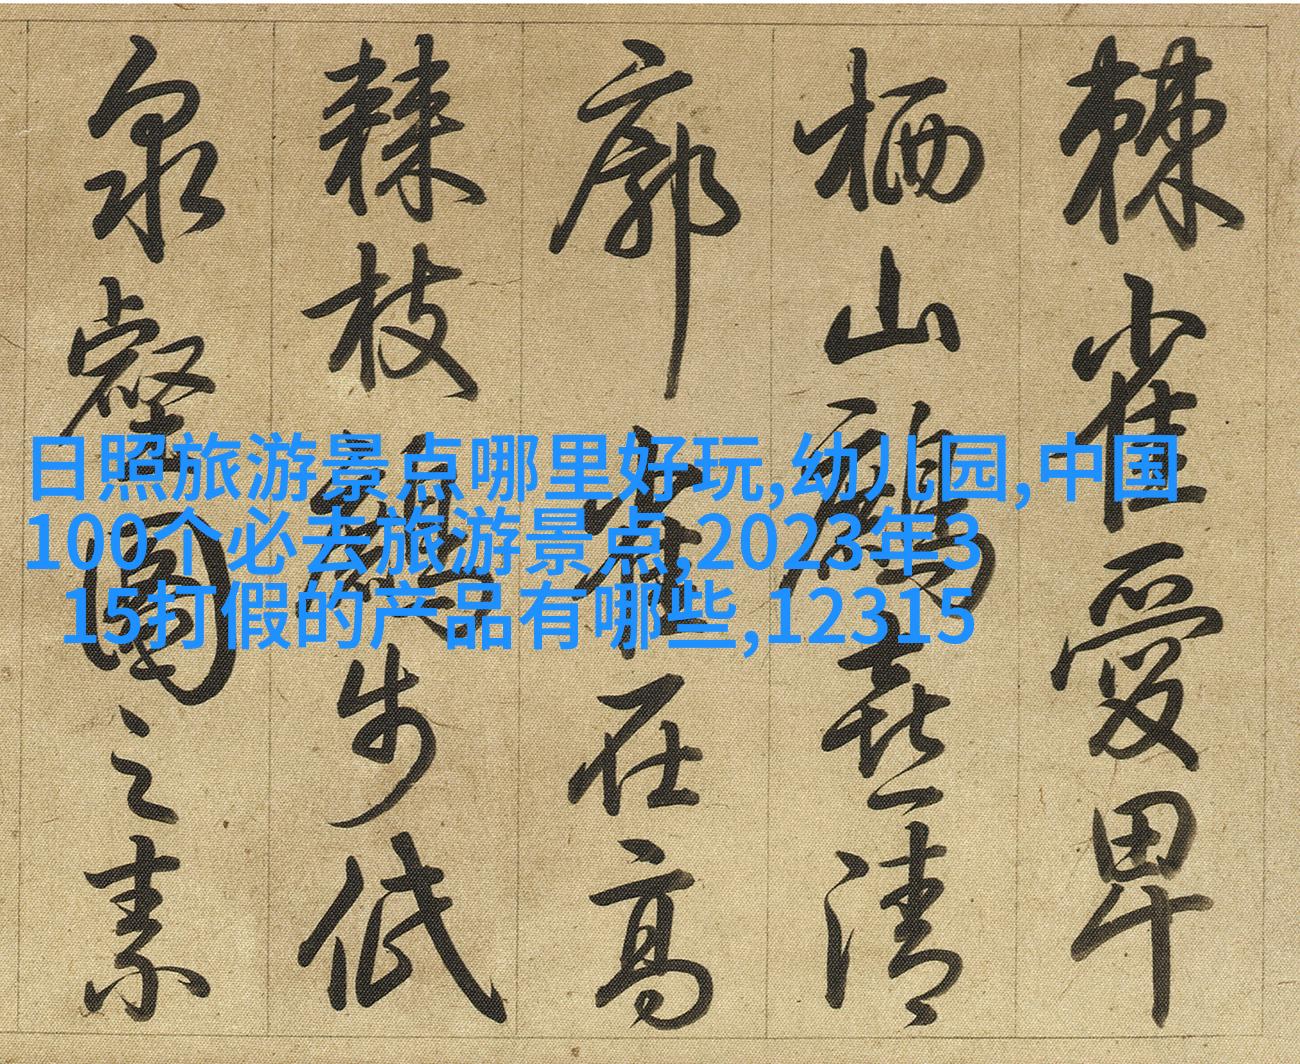 棘雀愛卑
栖山鷓喜清
廓雀在高
棘枝鷓步低
泉壑園之素
日照旅游景点哪里好玩,幼儿园,中国
100个必去旅游景点,2023年3
15打假的产品有哪些,12315